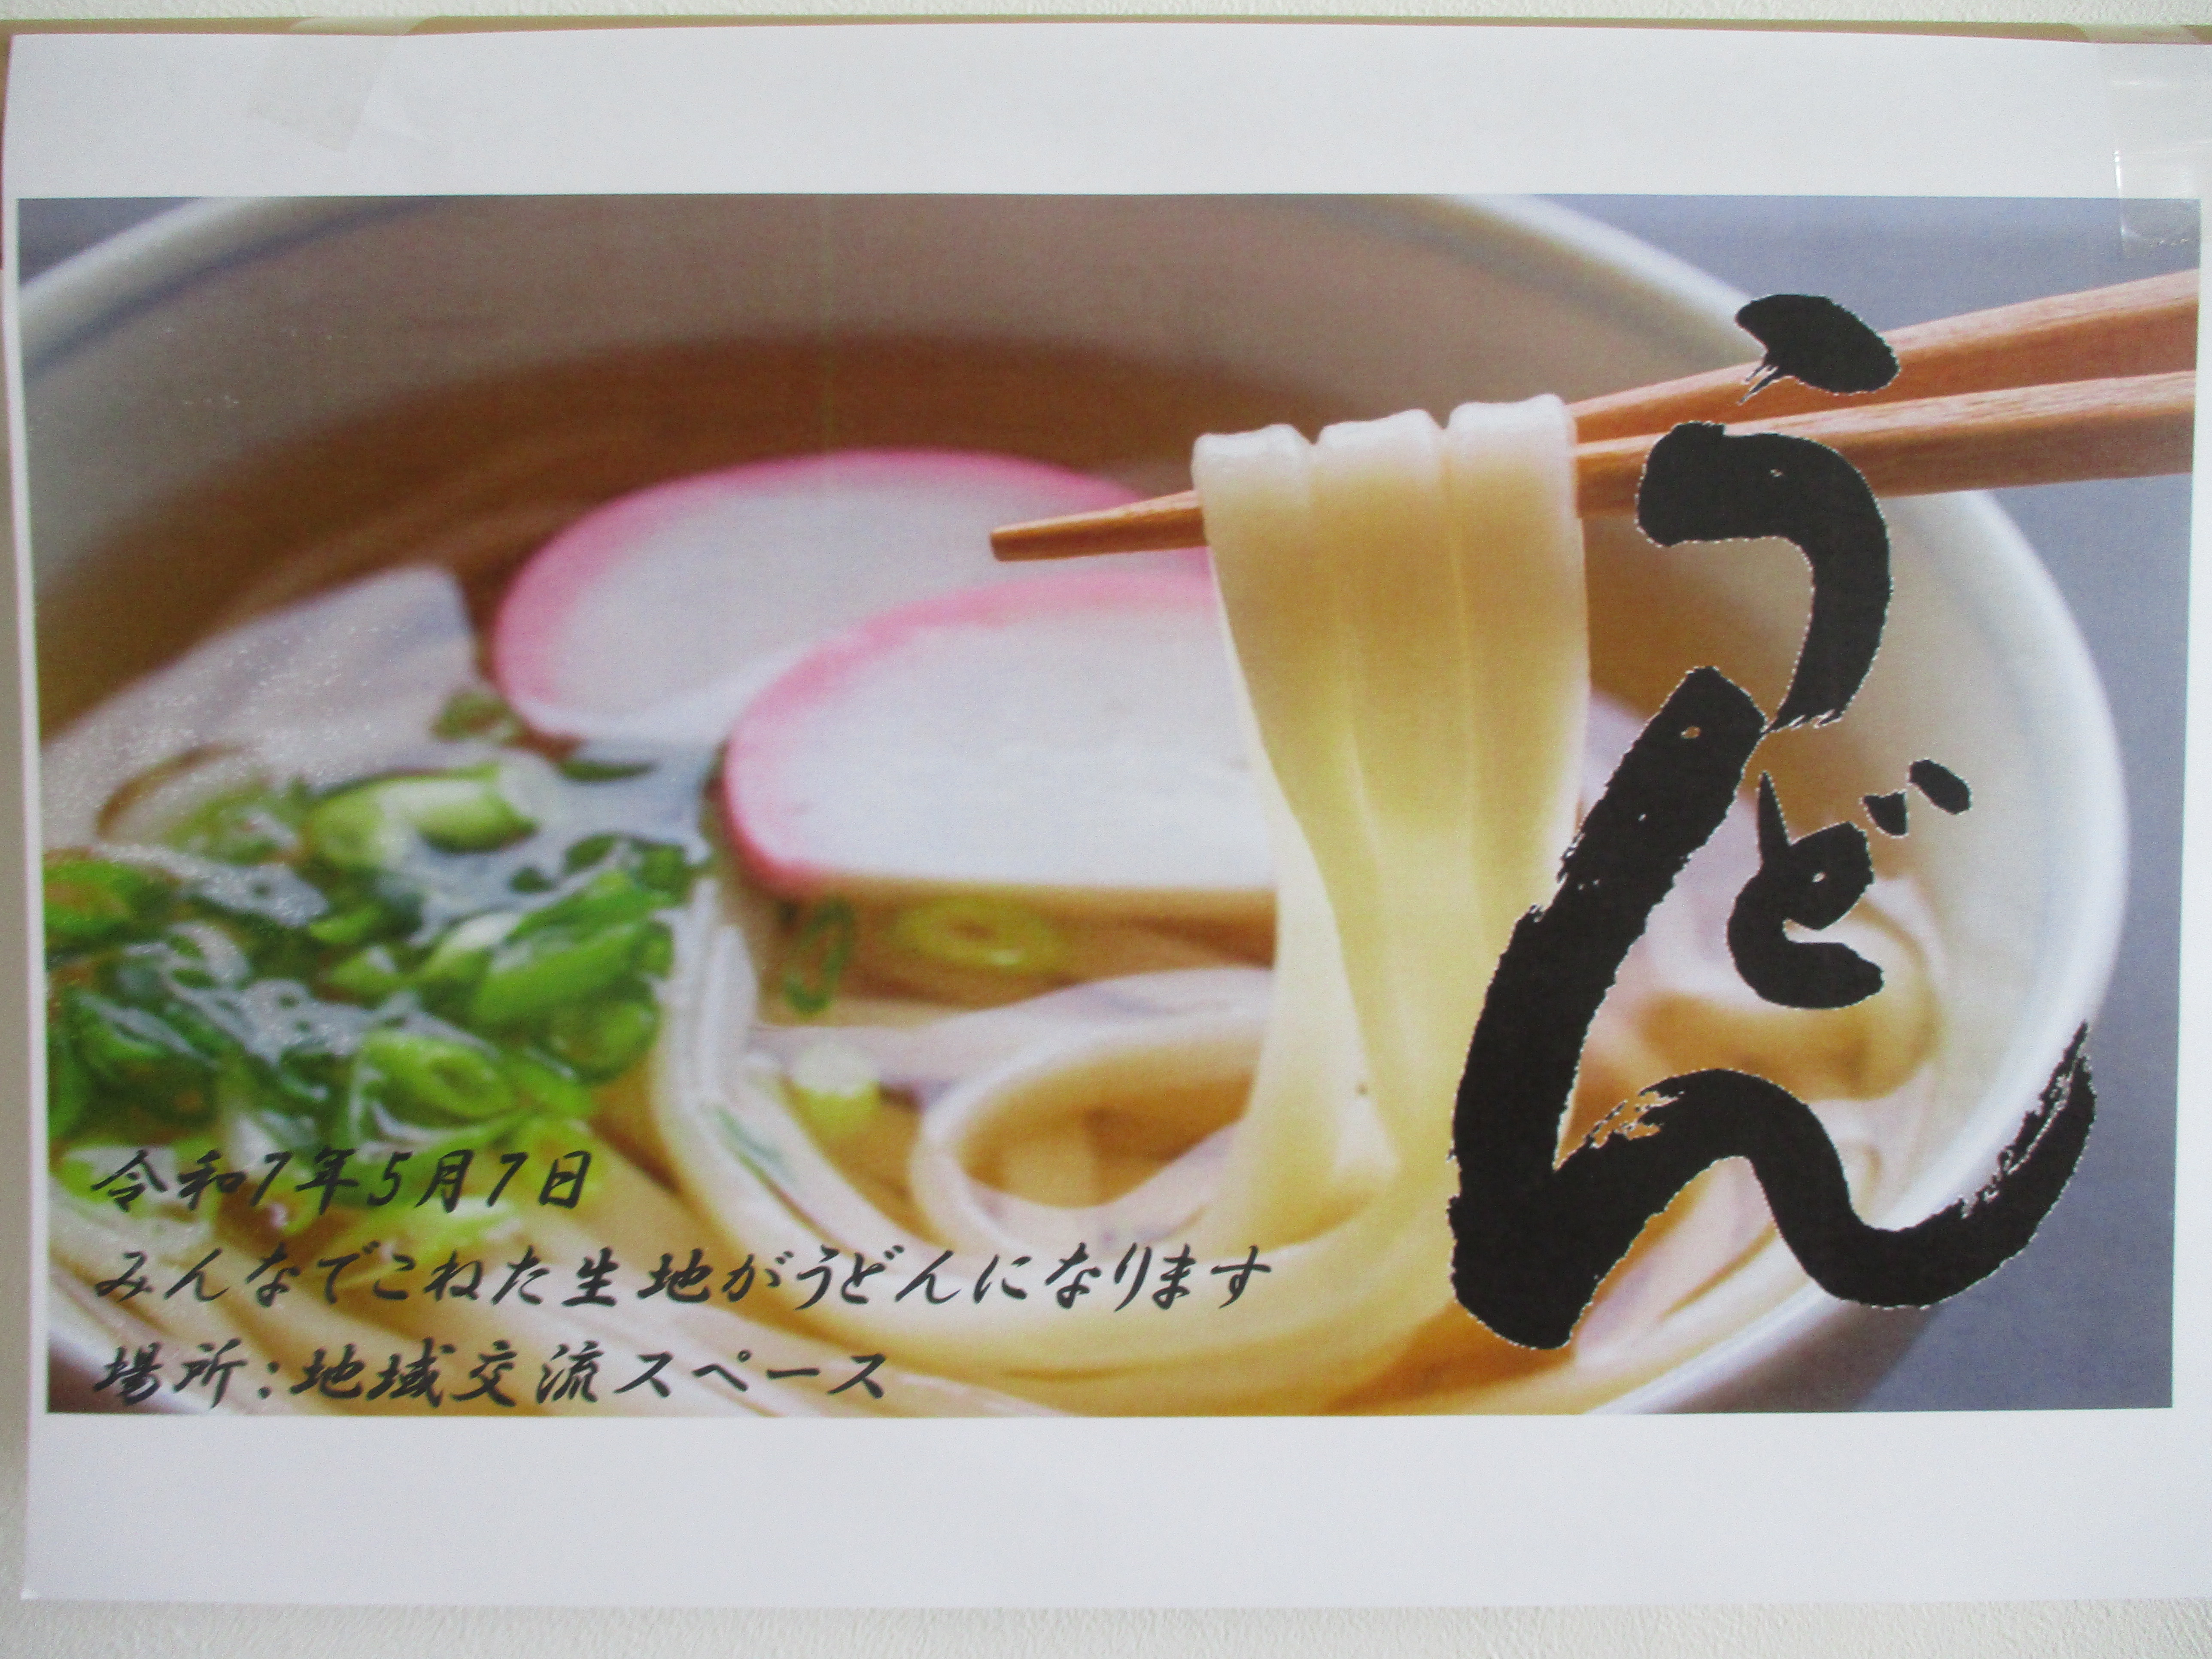 うどん
令和7年5月7日
みんなでこねた生地がうどんになります
場所：地域交流スペース